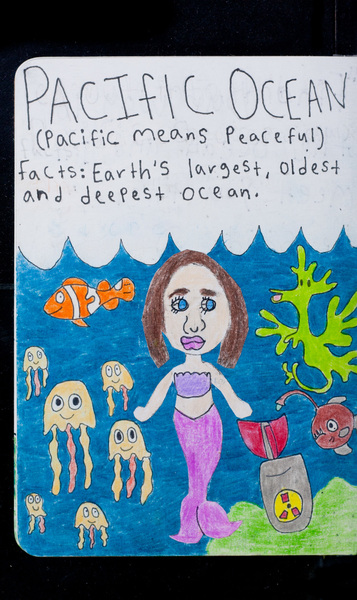 PACIfIC OCEAN
(Pacific means Peaceful)
facts: Earth's largest, oldest
and deepest ocean.